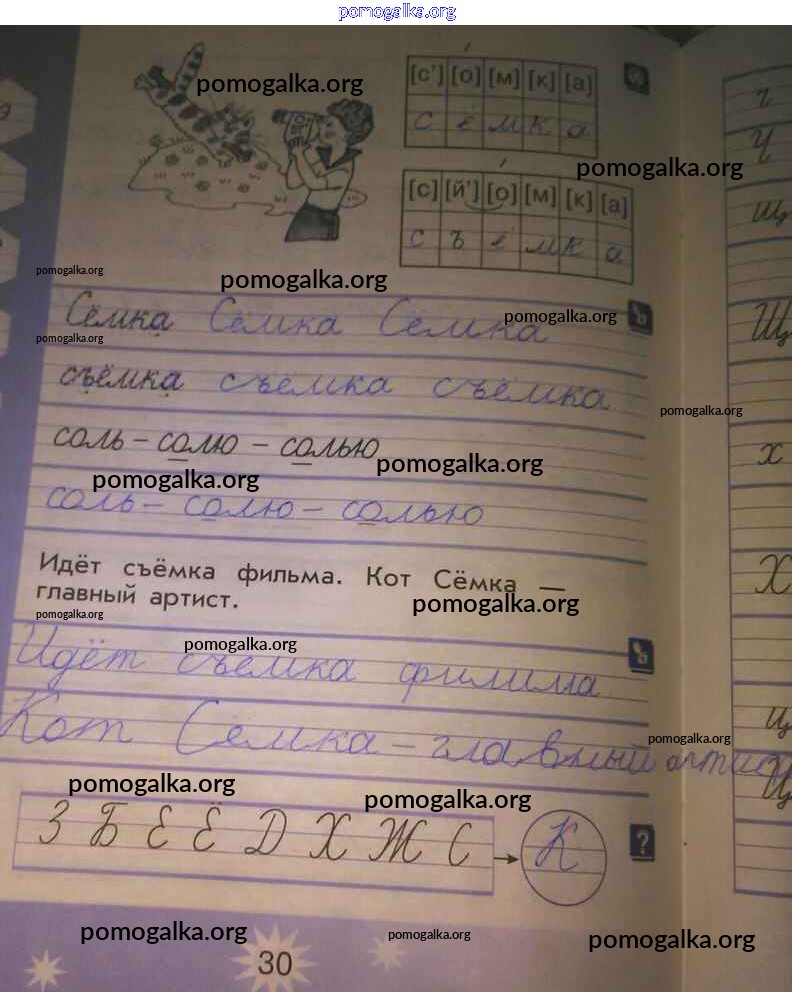 pomogalka.org
[с'] [о] [м] [к] [а]
с ё м к а
[с] [й'] [о] [м] [к] [а]
с ъ ё м к а
pomogalka.org
pomogalka.org
pomogalka.org
pomogalka.org
Сёмка Сёмка Сёмка
pomogalka.org
pomogalka.org
съёмка съёмка съёмка
pomogalka.org
соль – солю – солью
pomogalka.org
pomogalka.org
соль – солю – солью
Идёт съёмка фильма. Кот Сёмка —
главный артист.
pomogalka.org
pomogalka.org
pomogalka.org
Идёт съёмка фильма
Кот Сёмка – главный артист
pomogalka.org
pomogalka.org
pomogalka.org
З Б Е Ё Д Х Ж С К
?
pomogalka.org
pomogalka.org
pomogalka.org
30